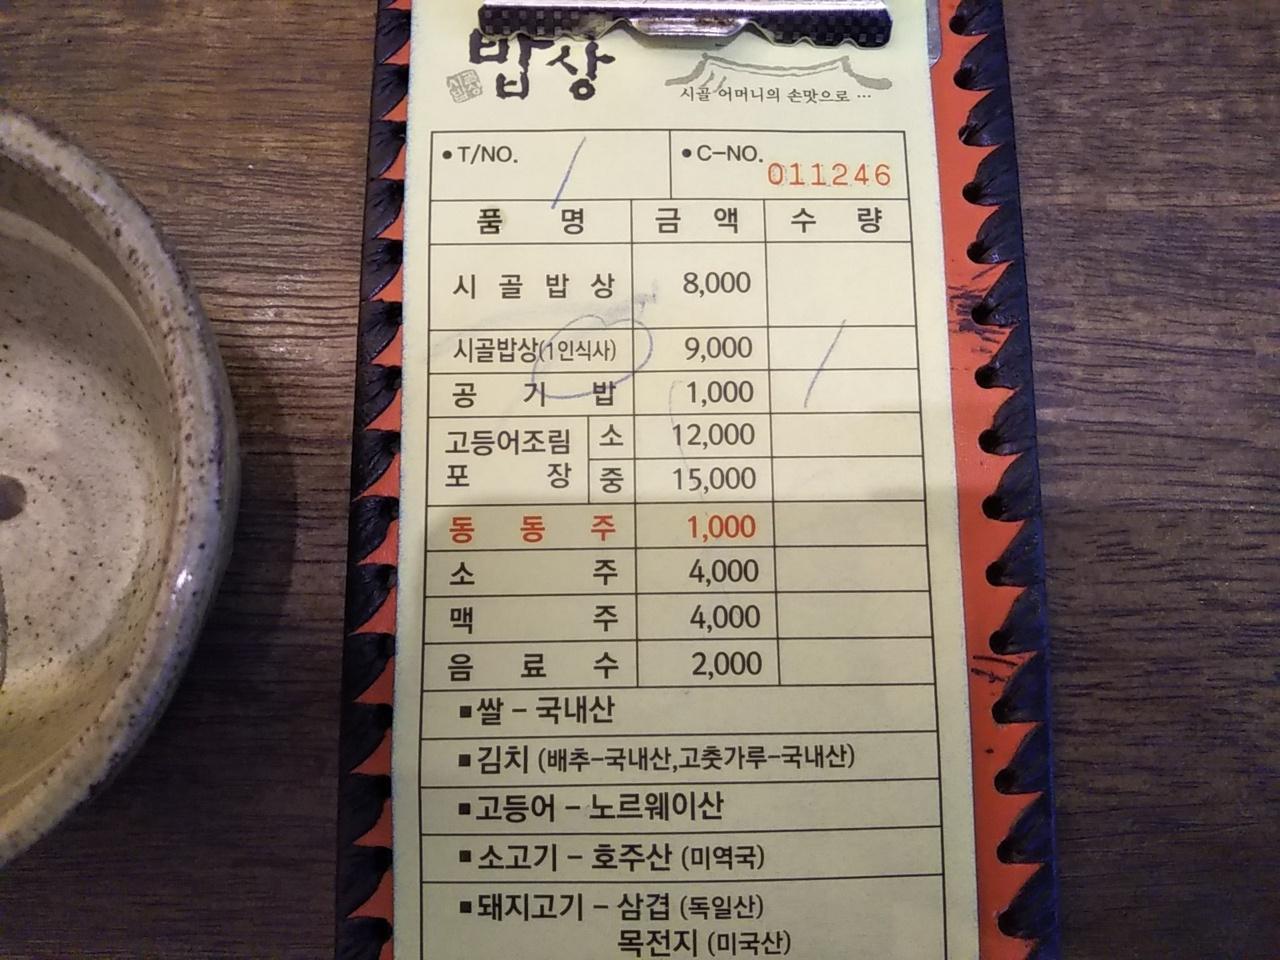 밥상
시골
밥상
시골 어머니의 손맛으로 ···
•T/NO. / •C-NO. 011246
품 명 금 액 수 량
시 골 밥 상 8,000
시골밥상(1인식사) 9,000 /
공 기 밥 1,000
고등어조림 소 12,000
포 장 중 15,000
동 동 주 1,000
소 주 4,000
맥 주 4,000
음 료 수 2,000
■쌀 - 국내산
■김치 (배추-국내산,고춧가루-국내산)
■고등어 - 노르웨이산
■소고기 - 호주산 (미역국)
■돼지고기 - 삼겹 (독일산)
목전지 (미국산)